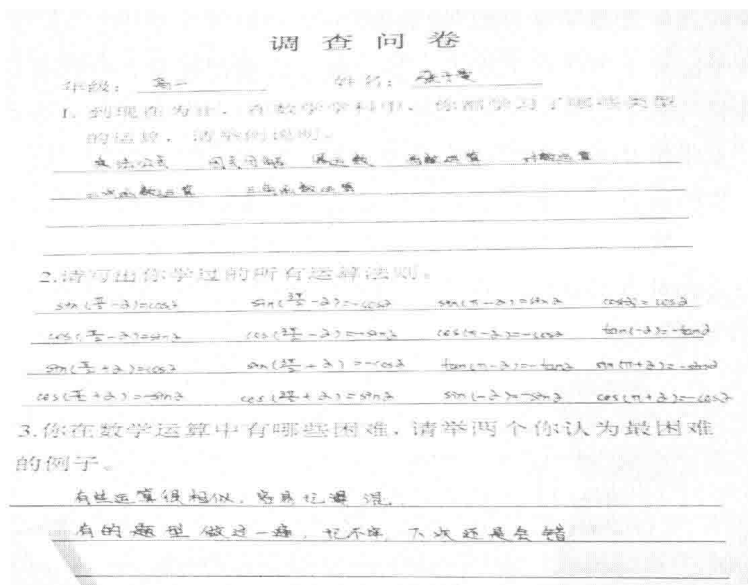 调查问卷
年级: 高一 姓名:
1. 到现在为止，在数学学科中，你都学习了哪些类型
的运算，请举例说明。
乘法公式 因式分解 幂函数 函数运算 对数运算
二次函数运算 三角函数运算
2.请写出你学过的所有运算法则。
sin(π/2-α)=cosα sin(3π/2-α)=-cosα sin(π-α)=sinα
cos(π/2-α)=sinα cos(3π/2-α)=-sinα cos(π-α)=-cosα tan(-α)=-tanα
sin(π/2+α)=cosα sin(3π/2+α)=-cosα tan(π-α)=-tanα sin(π+α)=-sinα
cos(π/2+α)=-sinα cos(3π/2+α)=sinα sin(-α)=-sinα cos(π+α)=-cosα
3.你在数学运算中有哪些困难，请举两个你认为最困难
的例子。
有些运算很相似，容易记混
有的题型做过一遍，记不牢，下次还是会错